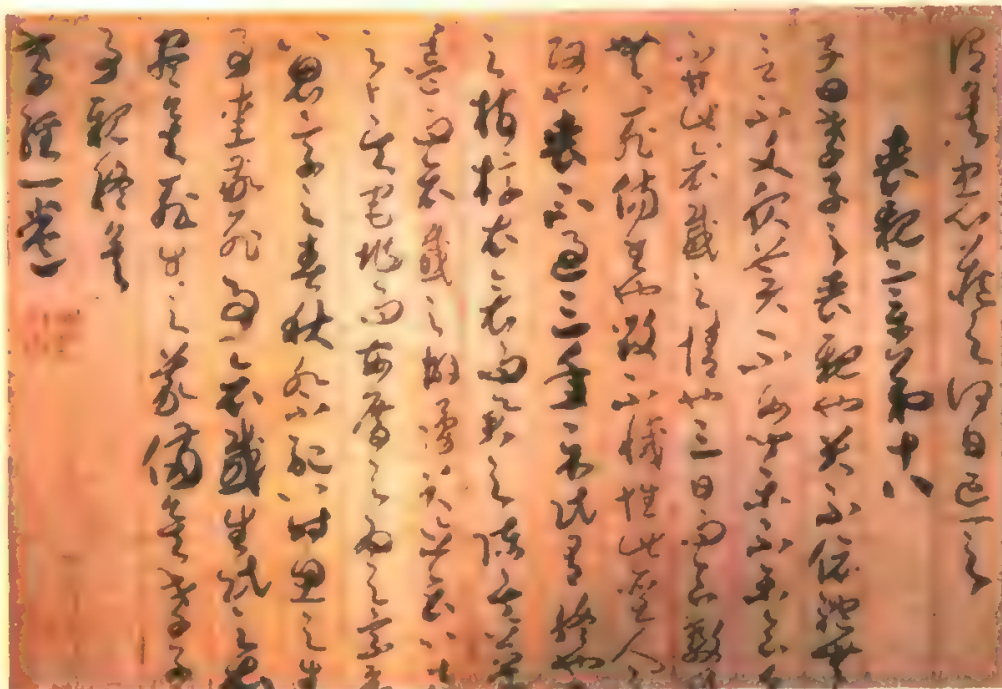 謂矣忠心藏之何日忘之
喪親章第十八
子曰孝子之喪親也哭不偯禮無
言不文服美不安聞樂不樂食旨
不甘此哀戚之情也三日而食教
無以死傷生也毀不滅性此聖人
政也喪不過三年示民有終也
之棺椁衣衾而舉之陳其簠
簋而哀戚之擗踊哭泣哀以送
之卜其宅兆而安厝之為之宗廟
以鬼享之春秋祭祀以時思之生
事愛敬死事哀戚生民之本
盡矣死生之義備矣孝子
事親終矣
孝經一卷